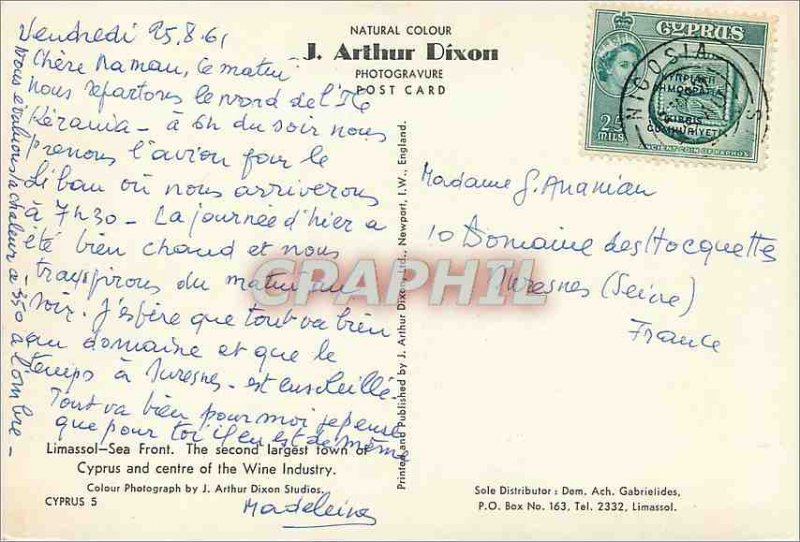 Vendredi 25.8.61
Chère Maman, ce matin
nous repartons le nord de l'Ile
Kérania - à 6h du soir nous
prenons l'avion pour le
Liban où nous arriverons
à 7h30 - La journée d'hier a
été bien chaud et nous
transpirons du matin au
soir. J'espère que tout va bien
au domaine et que le
temps à Suresnes - est ensoleillé -
Tout va bien pour moi je pense
que pour toi il en est de même
Madeleine
Nous évaluons la chaleur à 350 à l'ombre -
NATURAL COLOUR
J. Arthur Dixon
PHOTOGRAVURE
POST CARD
Printed and Published by J. Arthur Dixon Ltd., Newport, I.W., England.
CYPRUS
25
MILS
ΚΥΠΡΙΑΚΗ
ΔΗΜΟΚΡΑΤΙΑ
KIBRIS
CUMHURIYETI
ANCIENT COIN OF PAPHOS
NICOSIA
Madame G. Ananian
10 Domaine des Hocquettes
Suresnes (Seine)
France
CPAPHIL
Limassol—Sea Front. The second largest town of
Cyprus and centre of the Wine Industry.
Colour Photograph by J. Arthur Dixon Studios.
CYPRUS 5
Sole Distributor : Dem. Ach. Gabrielides,
P.O. Box No. 163, Tel. 2332, Limassol.